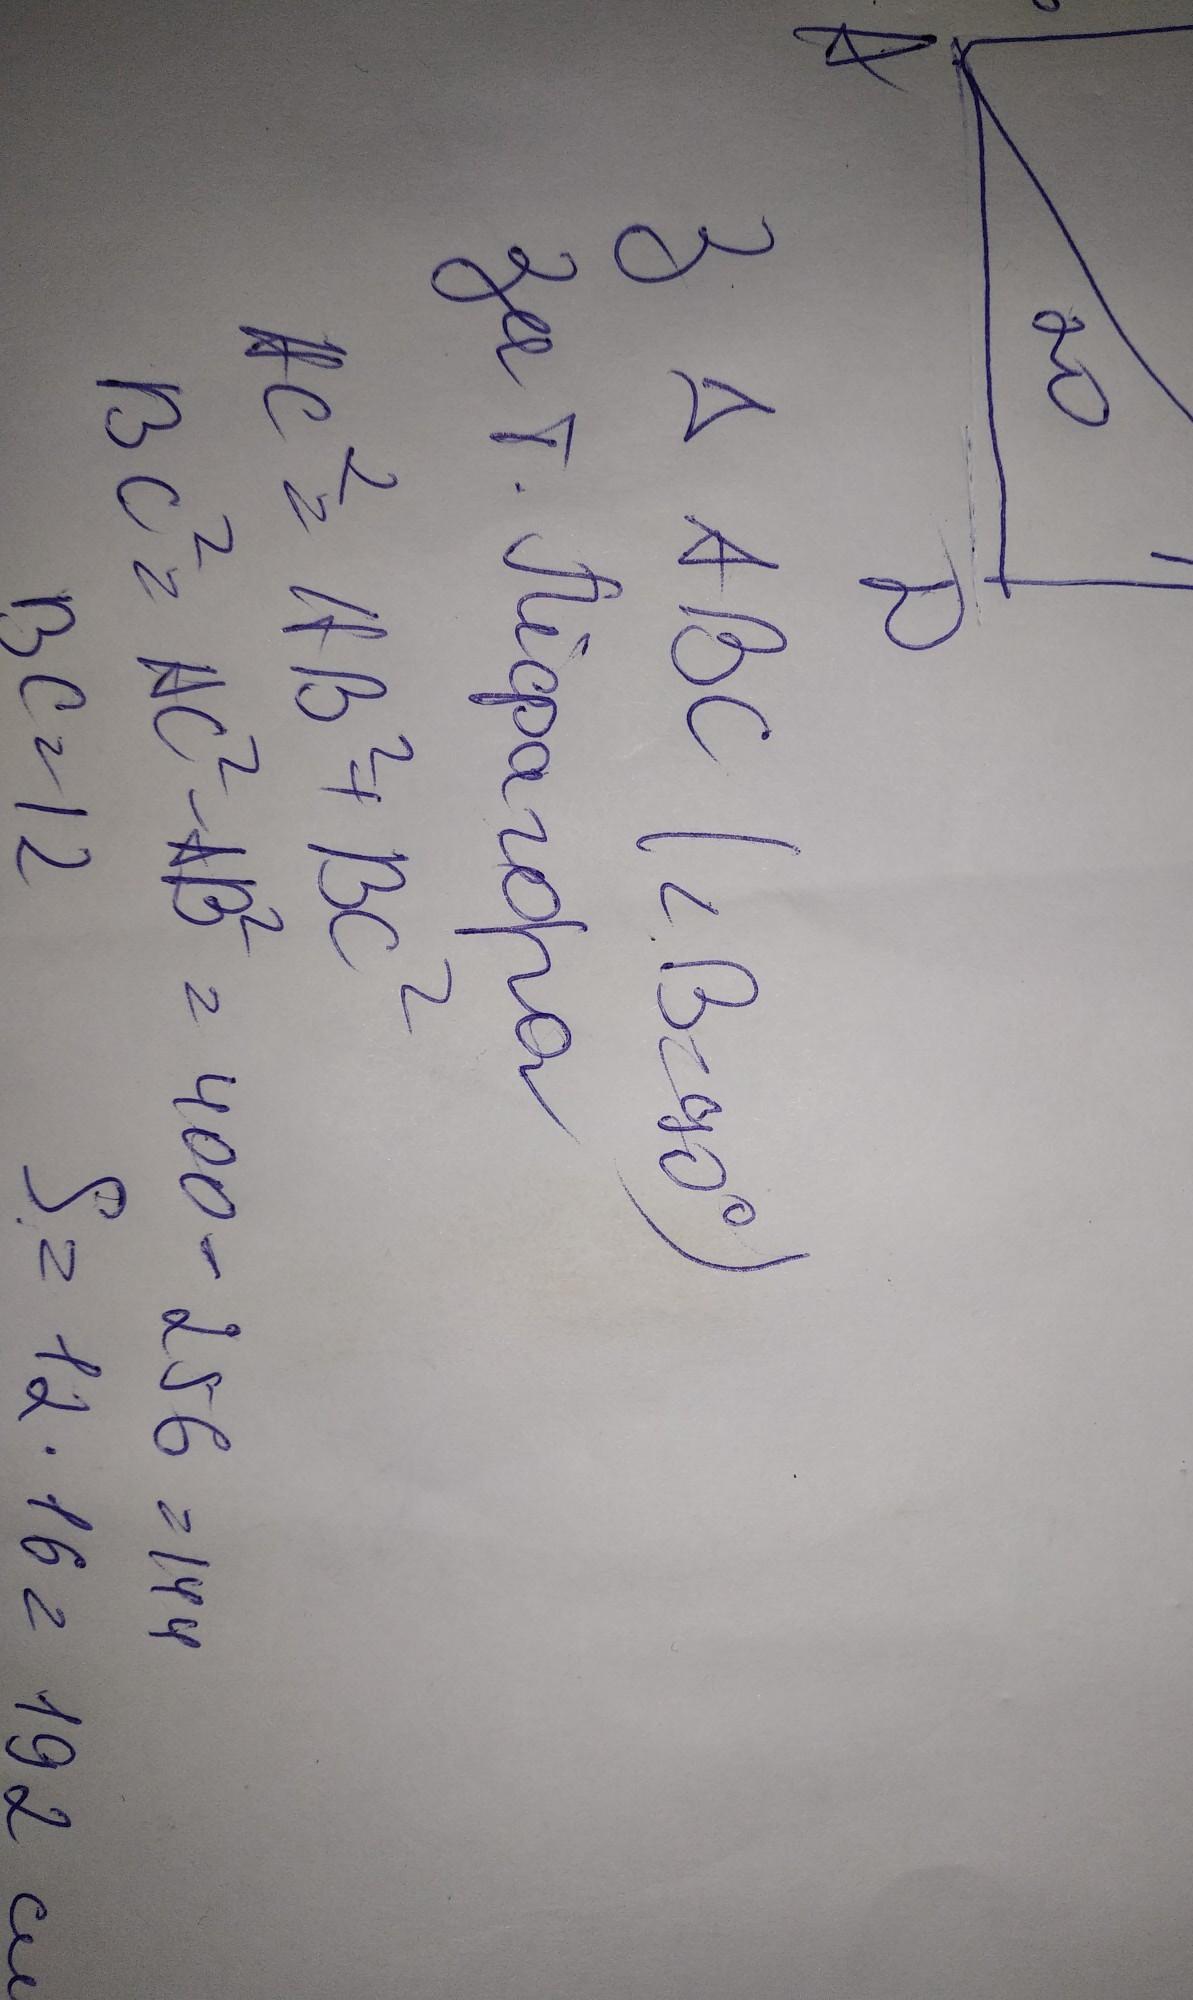 A
20
D
З Δ ABC (∠B=90°)
За т. Піфагора
AC²=AB²+BC²
BC²=AC²-AB²=400-256=144
BC=12
S=12·16=192 см